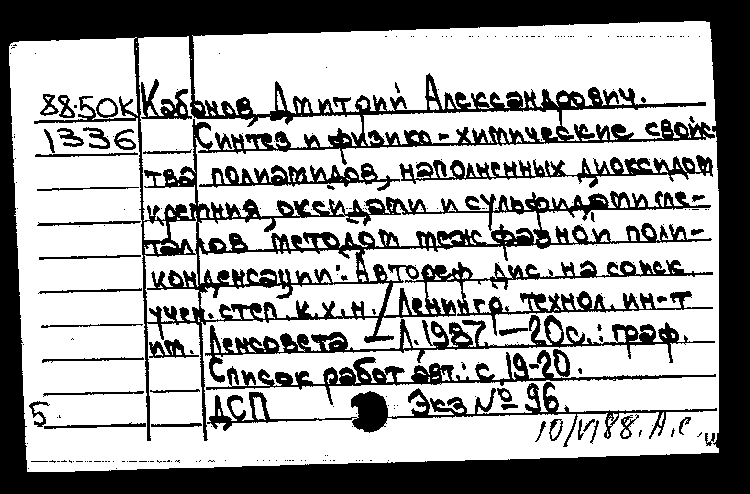 88-50К Кабанов, Дмитрий Александрович.
1336 Синтез и физико-химические свойс-
тва полиамидов, наполненных диоксидом
кремния, оксидами и сульфидами ме-
таллов методом межфазной поли-
конденсации: Автореф. дис. на соиск.
учен. степ. к.х.н. / Ленингр. технол. ин-т
им. Ленсовета. — Л. 1987. — 20 с.: граф.
Список работ авт.: с 19-20.
5 ДСП Экз № 96.
10/VI 88. А.С.